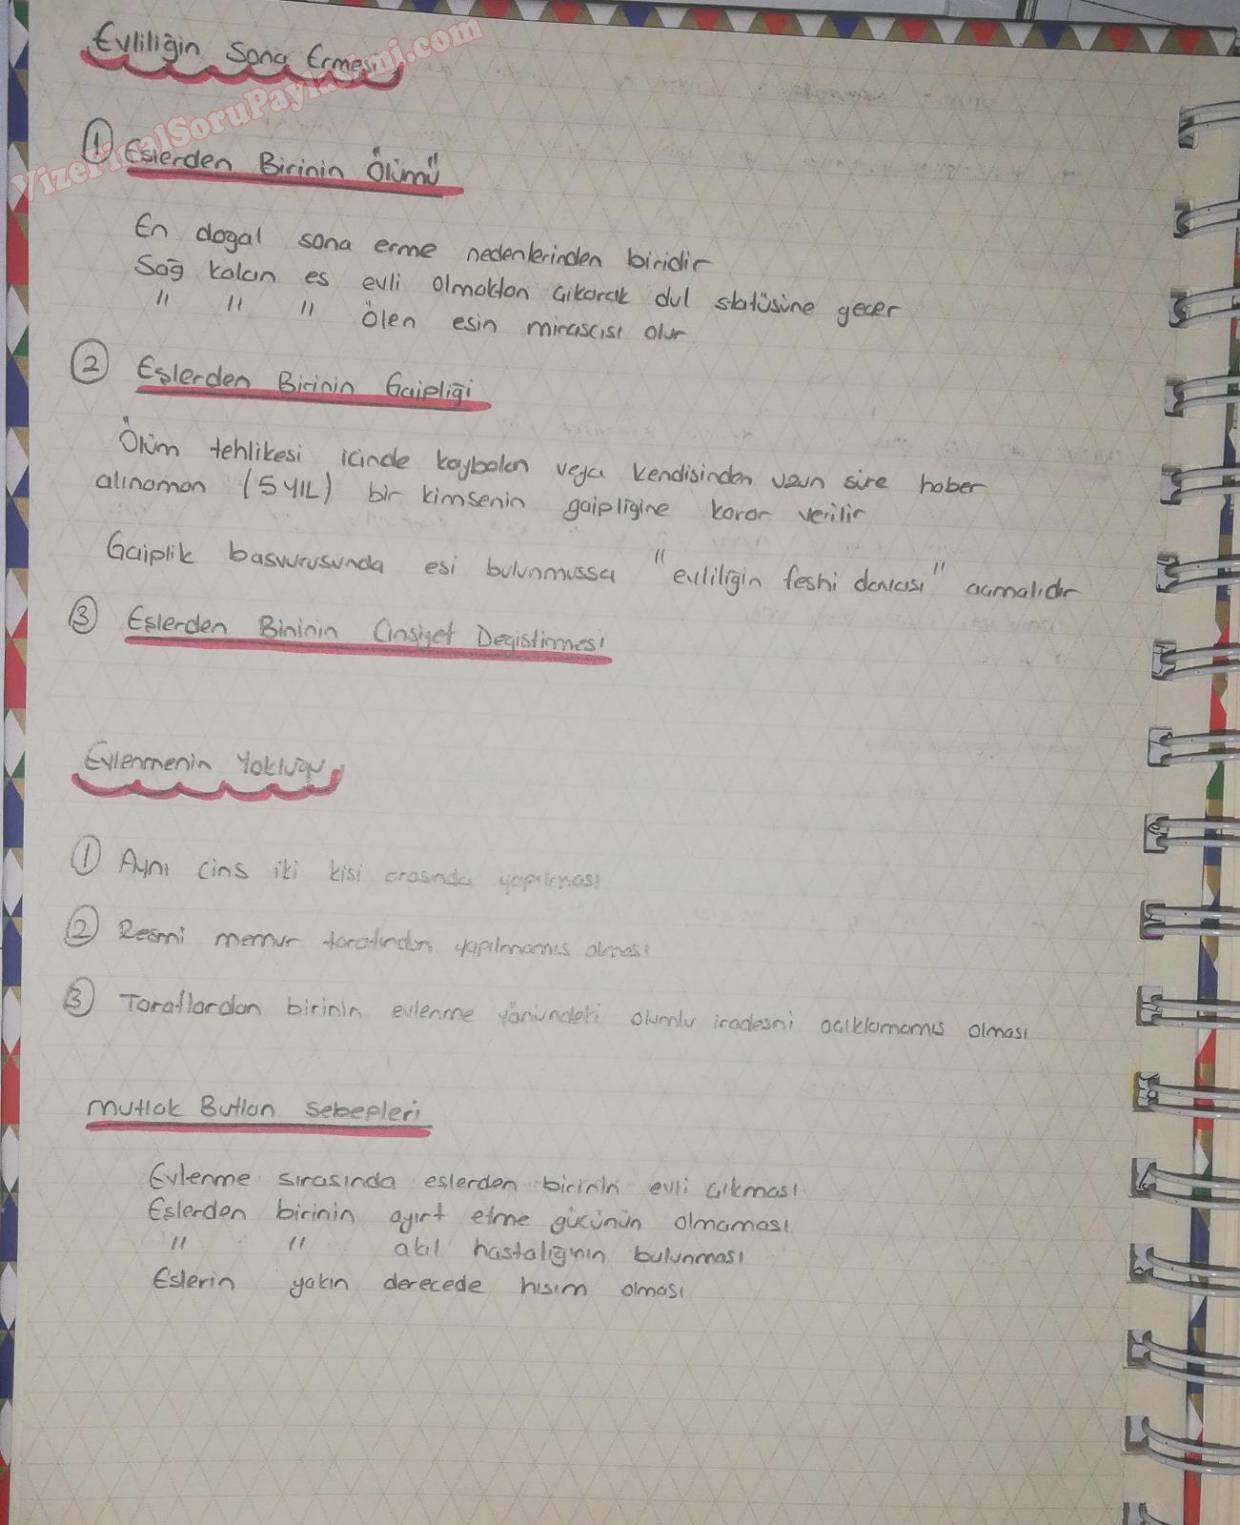 Evliliğin Sona Ermesi
VizeFinalSoruPaylasimi.com
① Eslerden Birinin Ölümü
En doğal sona erme nedenlerinden biridir
Sağ kalan es evli olmaktan cıkarak dul statüsüne gecer
" " " ölen esin mirascısı olur
② Eşlerden Birinin Gaipliği
Ölüm tehlikesi icinde kaybolan veya kendisinden uzun süre haber
alınaman (5 YIL) bir kimsenin gaipliğine karar verilir
Gaiplik basvurusunda esi bulunmussa "evliliğin feshi davası" acmalıdır
③ Eşlerden Birinin Cinsiyet Degistirmesi
Evlenmenin Yokluğu
① Aynı cins iki kisi arasında yapılması
② Resmi memur tarafından yapılmamıs olması
③ Taraflardan birinin evlenme yönündeki olumlu iradesni acıklamamıs olması
Mutlak Butlan Sebepleri
Evlenme sırasında eslerden birinin evli cıkması
Eşlerden birinin ayırt etme gücünün olmaması
" " akıl hastalığının bulunması
Eslerin yakın derecede hısım olması